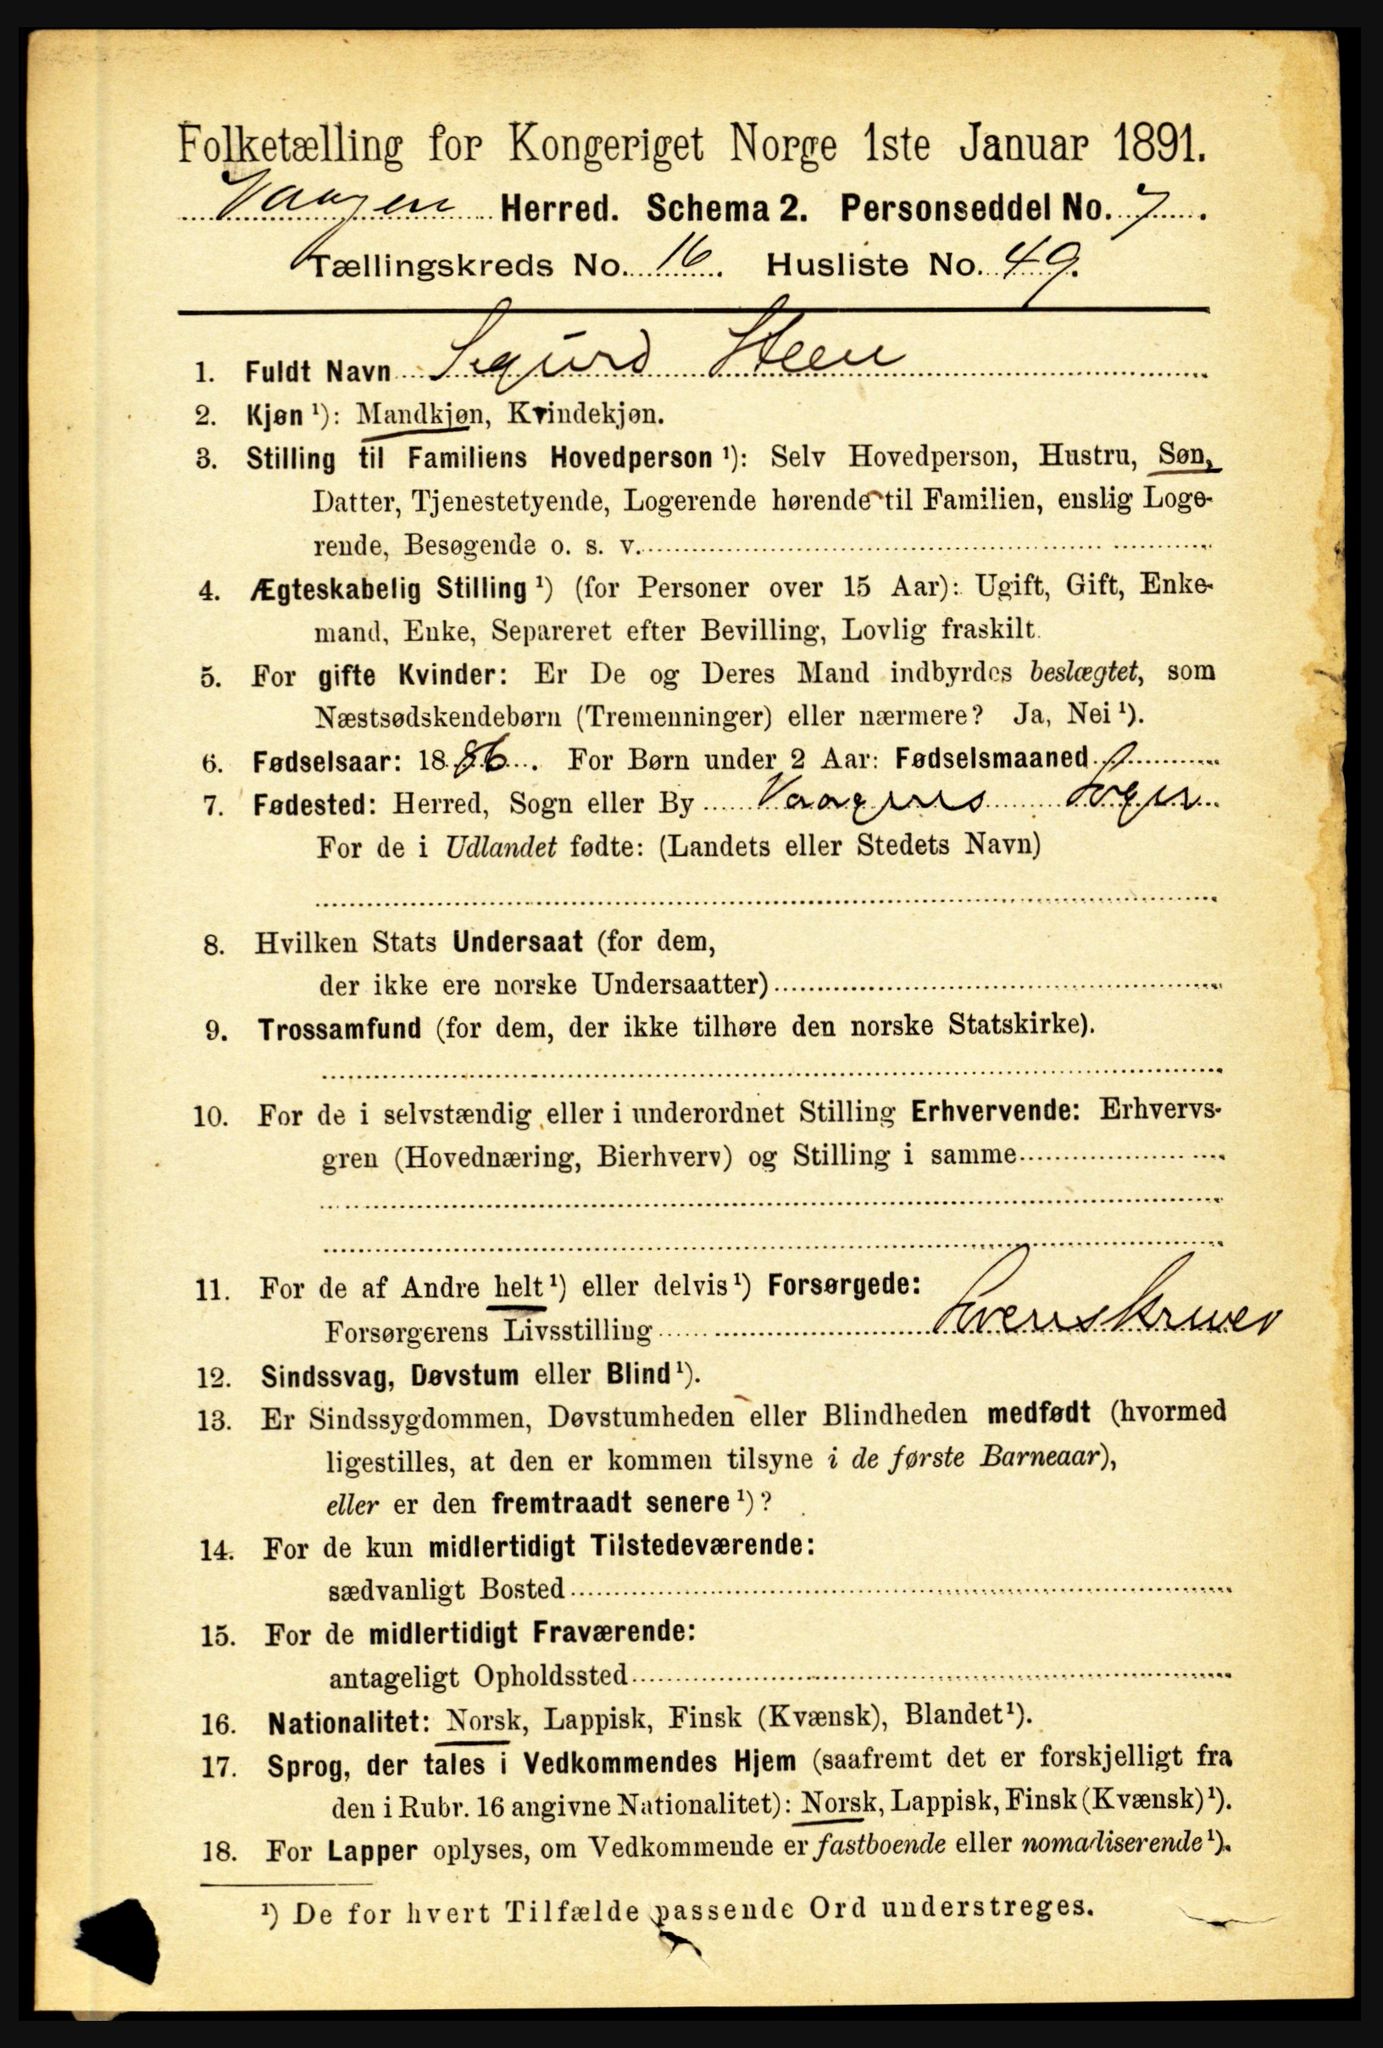 Folketælling for Kongeriget Norge 1ste Januar 1891.
Vaagen Herred. Schema 2. Personseddel No. 7.
Tællingskreds No. 16. Husliste No. 49.
1. Fuldt Navn Sigurd Steen
2. Kjøn ¹): Mandkjøn, Kvindekjøn.
3. Stilling til Familiens Hovedperson ¹): Selv Hovedperson, Hustru, Søn,
Datter, Tjenestetyende, Logerende hørende til Familien, enslig Loge-
rende, Besøgende o. s. v.
4. Ægteskabelig Stilling ¹) (for Personer over 15 Aar): Ugift, Gift, Enke-
mand, Enke, Separeret efter Bevilling, Lovlig fraskilt.
5. For gifte Kvinder: Er De og Deres Mand indbyrdes beslægtet, som
Næstsødskendebørn (Tremenninger) eller nærmere? Ja, Nei ¹).
6. Fødselsaar: 1886. For Børn under 2 Aar: Fødselsmaaned
7. Fødested: Herred, Sogn eller By Vaagens Sogn
For de i Udlandet fødte: (Landets eller Stedets Navn)
8. Hvilken Stats Undersaat (for dem,
der ikke ere norske Undersaatter)
9. Trossamfund (for dem, der ikke tilhøre den norske Statskirke).
10. For de i selvstændig eller i underordnet Stilling Erhvervende: Erhvervs-
gren (Hovednæring, Bierhverv) og Stilling i samme
11. For de af Andre helt ¹) eller delvis ¹) Forsørgede:
Forsørgerens Livsstilling
12. Sindssvag, Døvstum eller Blind ¹).
13. Er Sindssygdommen, Døvstumheden eller Blindheden medfødt (hvormed
ligestilles, at den er kommen tilsyne i de første Barneaar),
eller er den fremtraadt senere ¹)?
14. For de kun midlertidigt Tilstedeværende:
sædvanligt Bosted
15. For de midlertidigt Fraværende:
antageligt Opholdssted
16. Nationalitet: Norsk, Lappisk, Finsk (Kvænsk), Blandet ¹).
17. Sprog, der tales i Vedkommendes Hjem (saafremt det er forskjelligt fra
den i Rubr. 16 angivne Nationalitet): Norsk, Lappisk, Finsk (Kvænsk) ¹).
18. For Lapper oplyses, om Vedkommende er fastboende eller nomadiserende ¹).
¹) De for hvert Tilfælde passende Ord understreges.